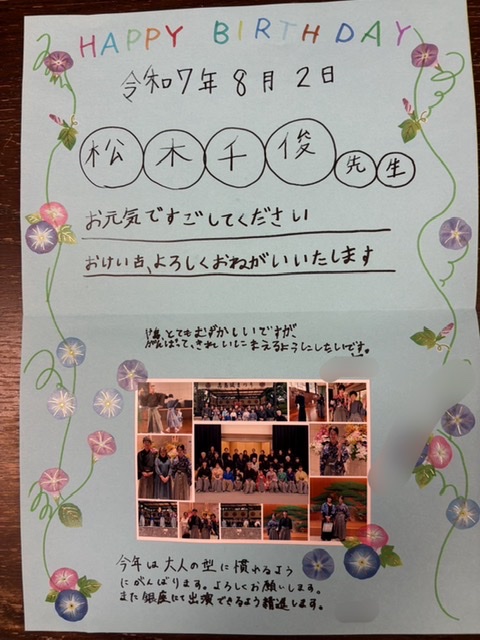 HAPPY BIRTHDAY
令和7年8月2日
松木千俊先生
お元気ですごしてください
おけい古、よろしくおねがいいたします
とてもむずかしいですが
今年は大人の型に慣れるよう
にがんばります。よろしくお願いします。
また銀座にて出演できるよう精進します。